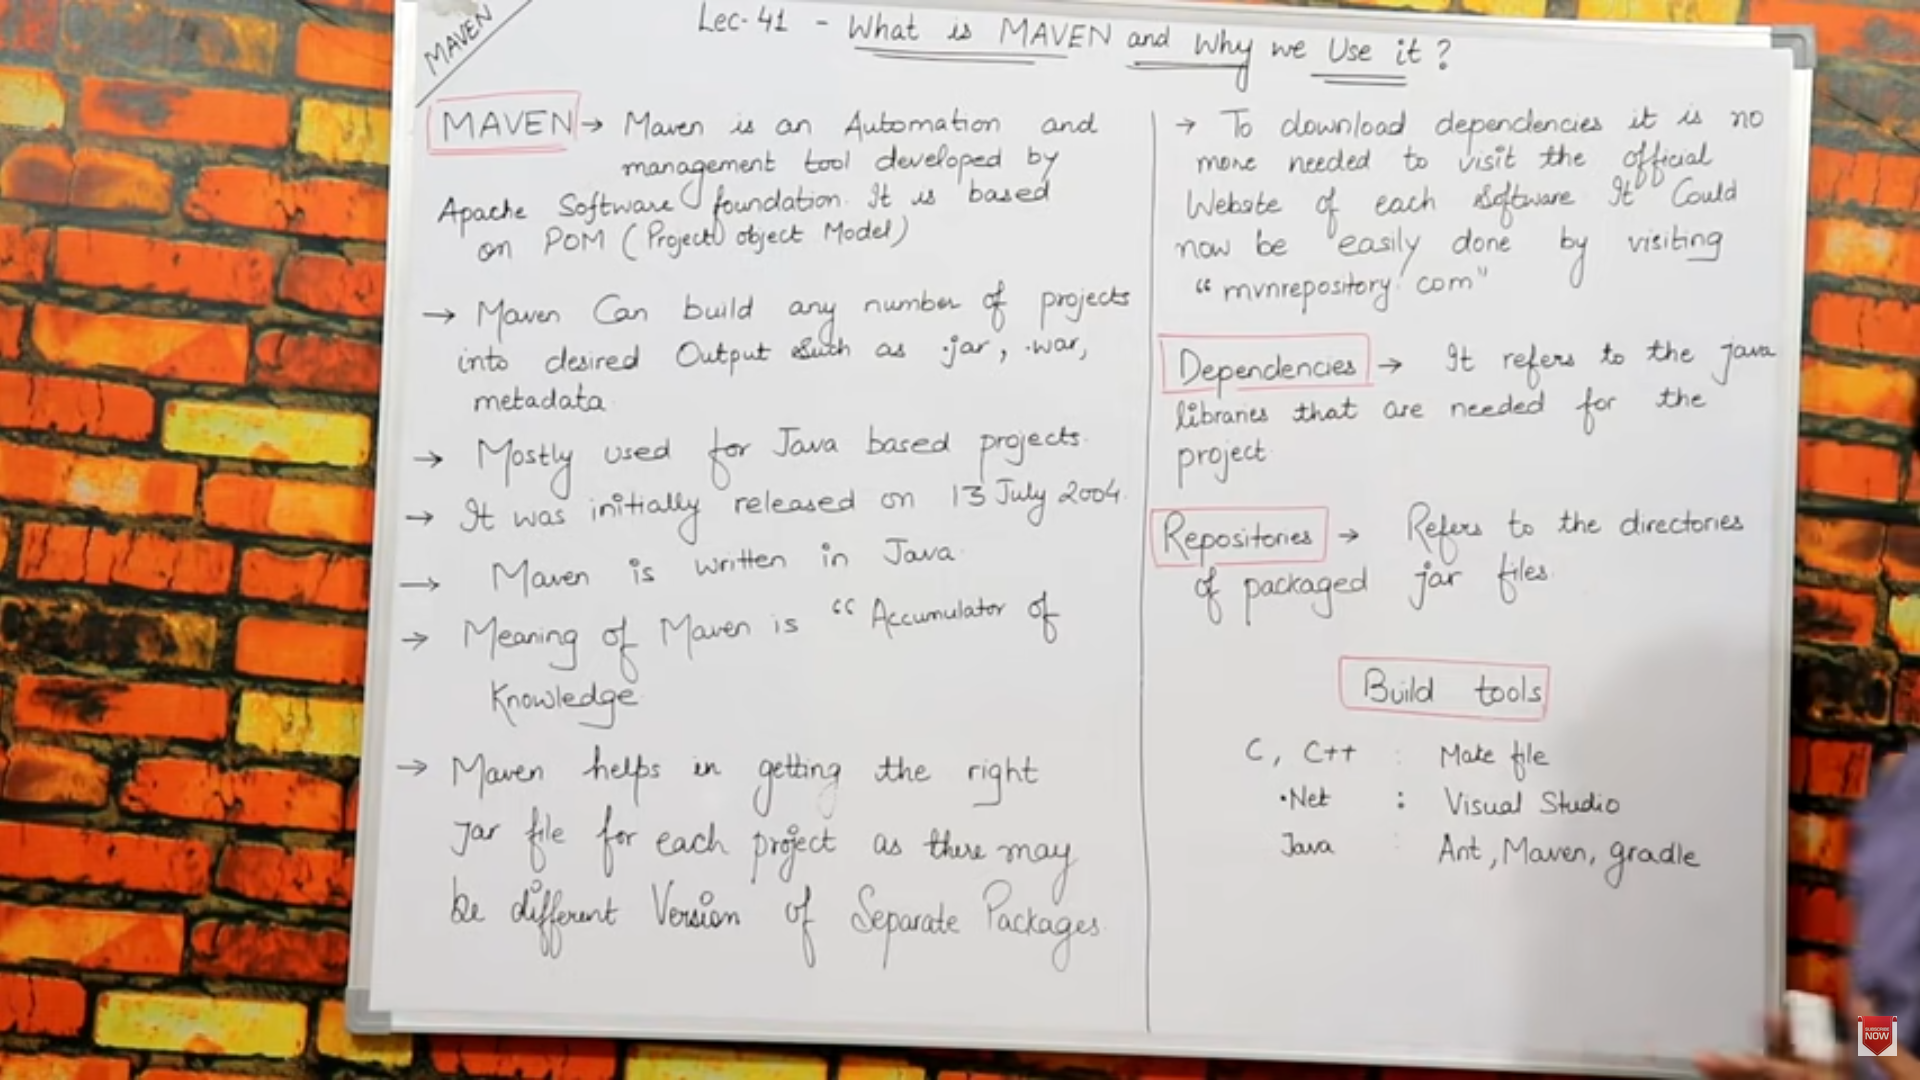 MAVEN
Lec-41 - What is MAVEN and Why we Use it ?
MAVEN → Maven is an Automation and
management tool developed by
Apache Software foundation. It is based
on POM (Project object Model)
→ Maven Can build any number of projects
into desired Output such as .jar, .war,
metadata.
→ Mostly used for Java based projects.
→ It was initially released on 13 July 2004.
→ Maven is written in Java.
→ Meaning of Maven is “Accumulator of
Knowledge
→ Maven helps in getting the right
jar file for each project as there may
be different Version of Separate Packages.
→ To download dependencies it is no
more needed to visit the official
Website of each software It Could
now be easily done by visiting
“mvnrepository.com”
Dependencies → It refers to the java
libraries that are needed for the
project.
Repositories → Refers to the directories
of packaged jar files.
Build tools
C, C++ : Make file
.Net : Visual Studio
Java : Ant, Maven, gradle
SUBSCRIBE
NOW